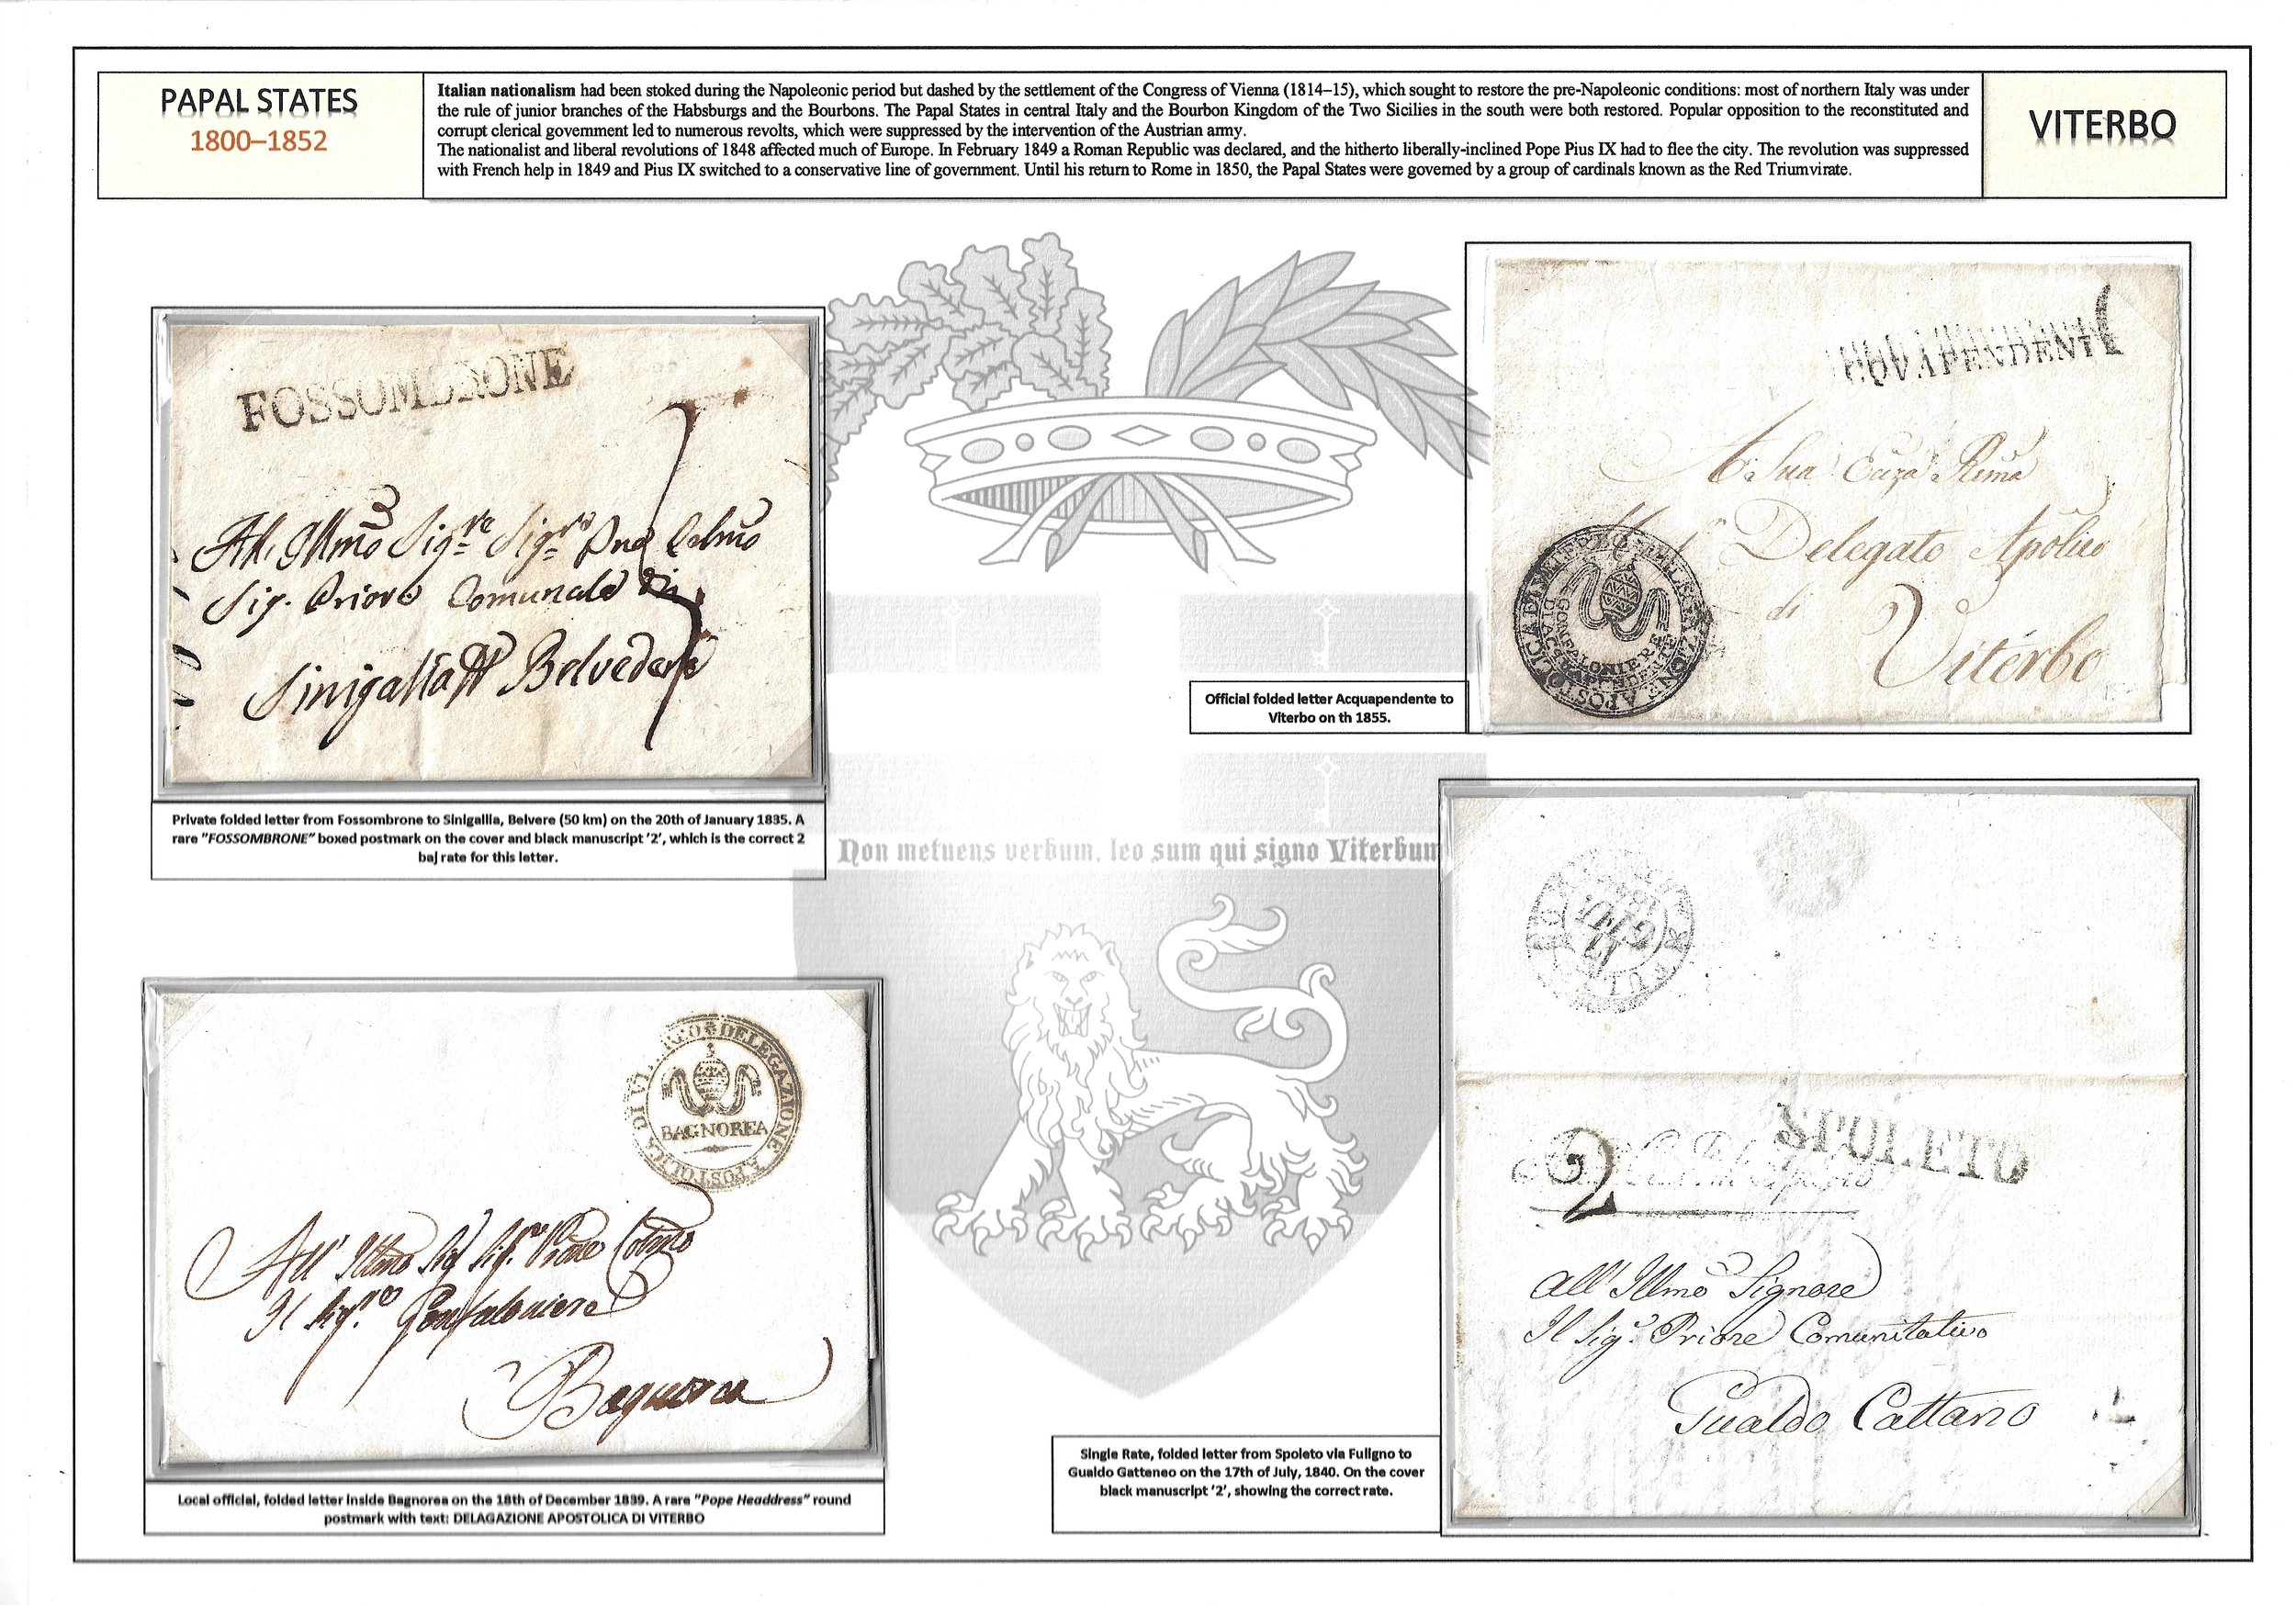 PAPAL STATES
1800–1852
Italian nationalism had been stoked during the Napoleonic period but dashed by the settlement of the Congress of Vienna (1814–15), which sought to restore the pre-Napoleonic conditions: most of northern Italy was under
the rule of junior branches of the Habsburgs and the Bourbons. The Papal States in central Italy and the Bourbon Kingdom of the Two Sicilies in the south were both restored. Popular opposition to the reconstituted and
corrupt clerical government led to numerous revolts, which were suppressed by the intervention of the Austrian army.
The nationalist and liberal revolutions of 1848 affected much of Europe. In February 1849 a Roman Republic was declared, and the hitherto liberally-inclined Pope Pius IX had to flee the city. The revolution was suppressed
with French help in 1849 and Pius IX switched to a conservative line of government. Until his return to Rome in 1850, the Papal States were governed by a group of cardinals known as the Red Triumvirate.
VITERBO
FOSSOMBRONE
All. Illmo Sigre Sigre Pne Colmo
Sig. Priore Comunale di
Sinigallia Belvedere
Private folded letter from Fossombrone to Sinigallia, Belvere (50 km) on the 20th of January 1835. A
rare "FOSSOMBRONE" boxed postmark on the cover and black manuscript '2', which is the correct 2
baj rate for this letter.
CQVAPENDENTE
A Sua Ecūza Rēma
Delegato Apōlico
di
Viterbo
DELEGAZIONE APOSTOLICA DI VITERBO
GONFALONIERE
DI ACQUAPENDENTE
Official folded letter Acquapendente to
Viterbo on th 1855.
Non metuens verbum, leo sum qui signo Viterbum
DELEGAZIONE APOSTOLICA DI VITERBO
BAGNOREA
All' Illmo Sig Sigre Pne Colmo
Il Sigre Gonfaloniere
Bagnorea
Local official, folded letter inside Bagnorea on the 18th of December 1839. A rare "Pope Headdress" round
postmark with text: DELAGAZIONE APOSTOLICA DI VITERBO
17
GIU
SPOLETO
2
All' Illmo Signore
Il Sigr Priore Comunitativo
Gualdo Cattano
Single Rate, folded letter from Spoleto via Fuligno to
Gualdo Gatteneo on the 17th of July, 1840. On the cover
black manuscript '2', showing the correct rate.